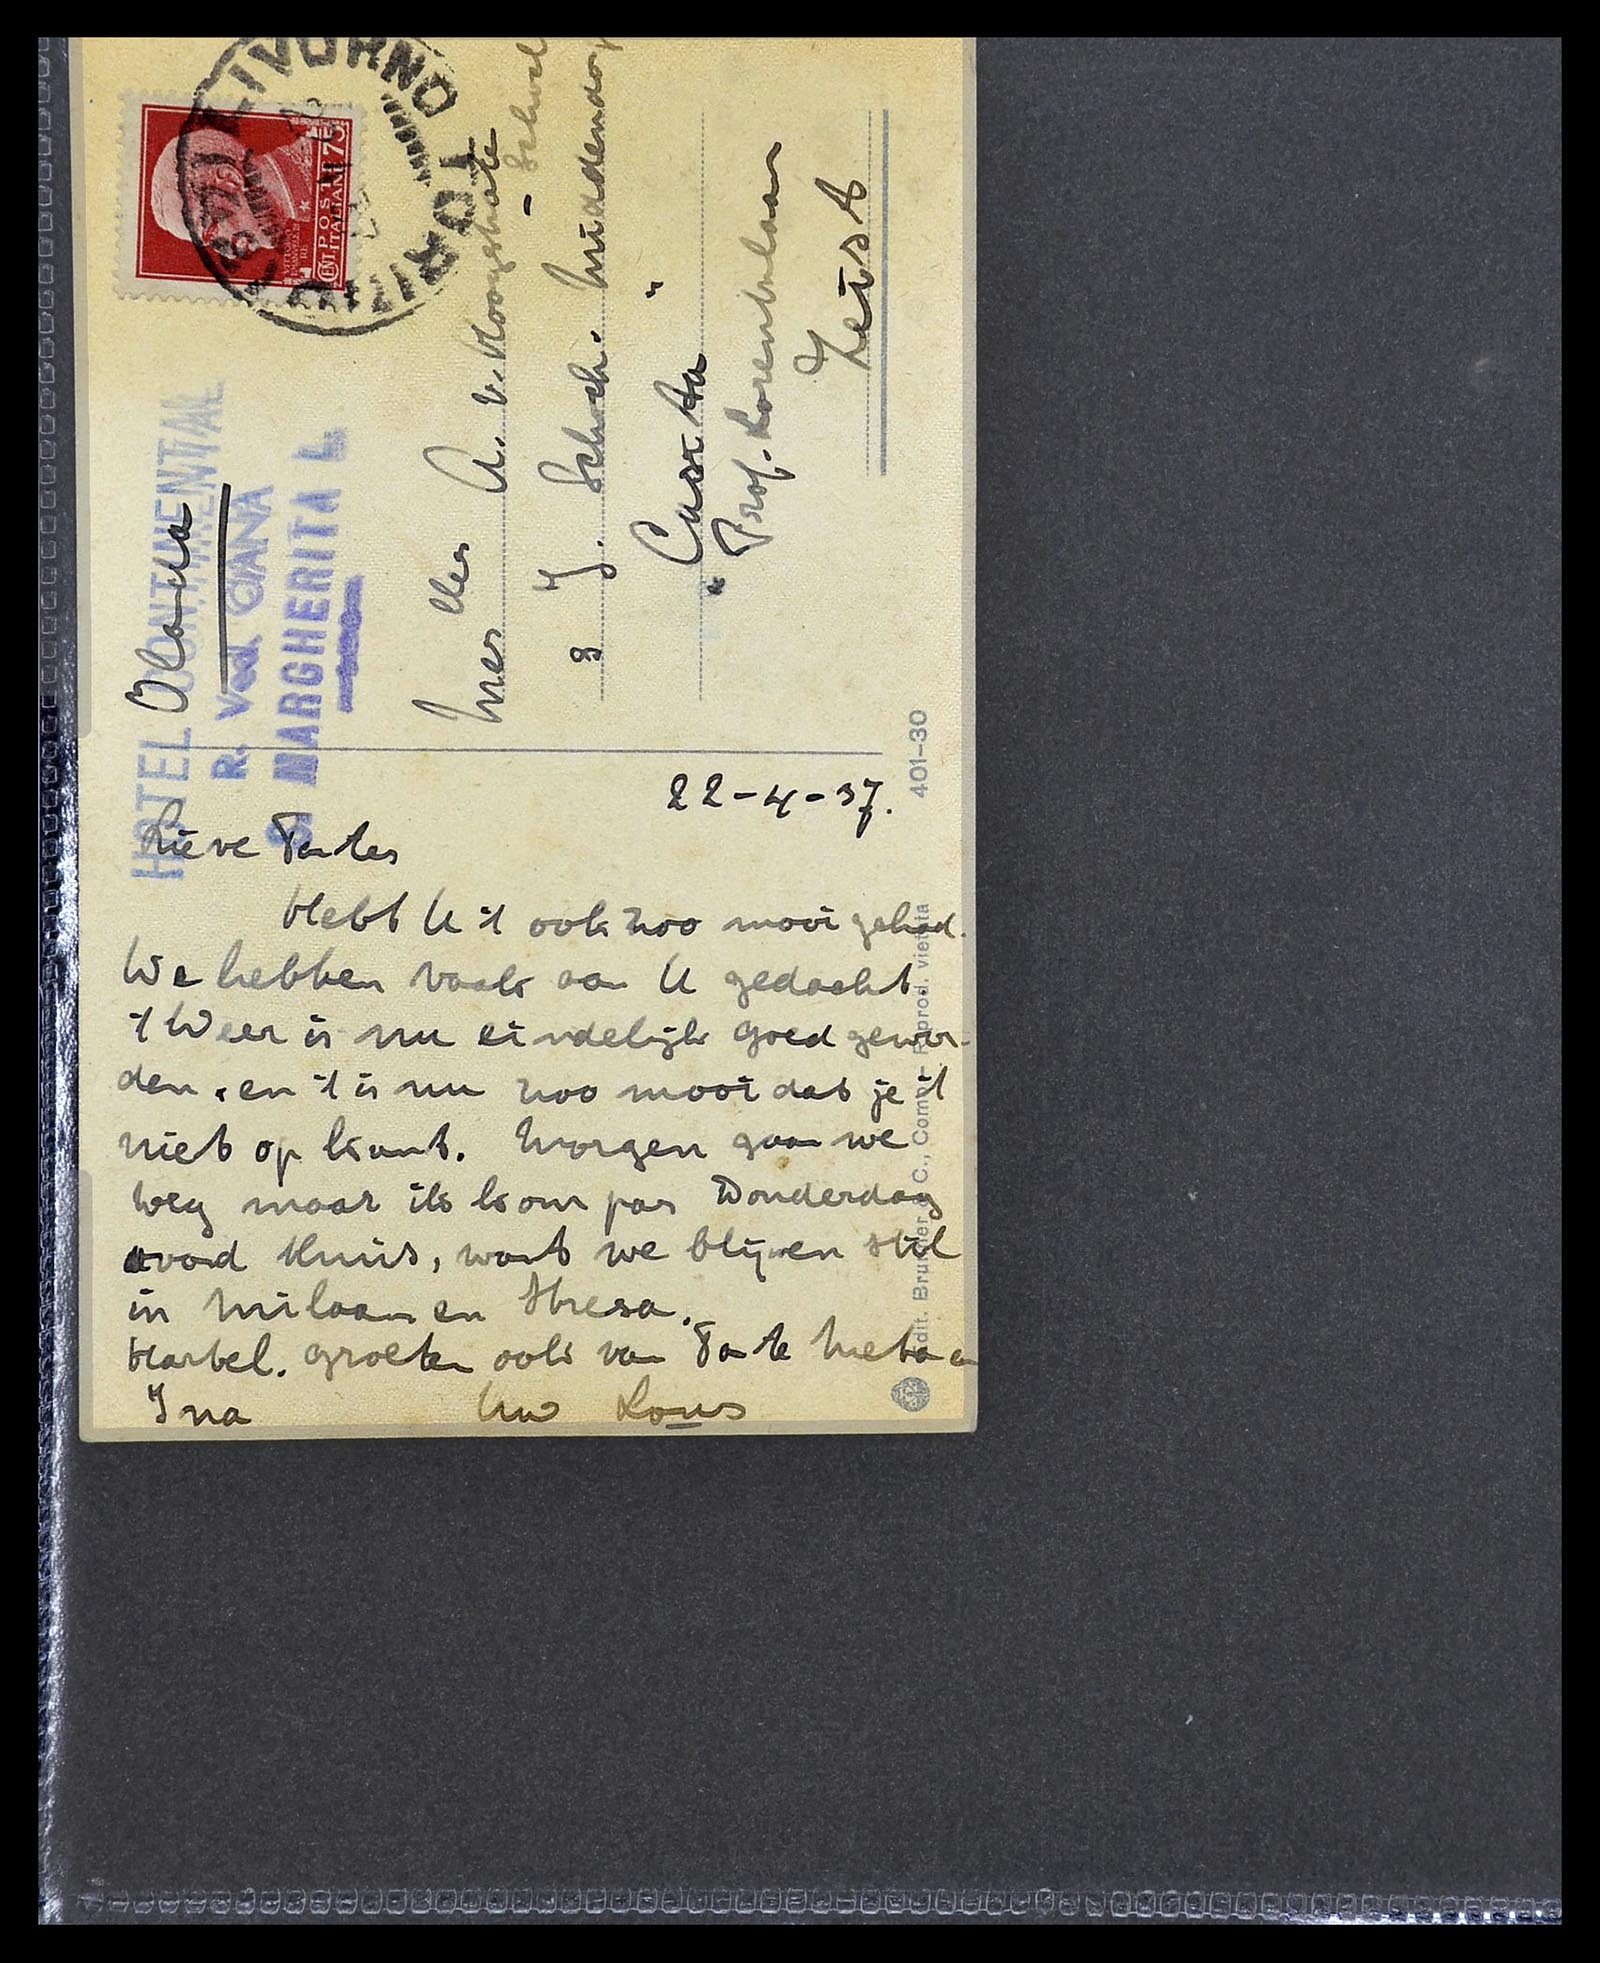 LIVORNO
75
POSTE ITALIANE
HOTEL CONTINENTAL
R. Ved. CIANA
S. MARGHERITA L.
Olanda
Mes dlles A. v. Hoogstrate
J. Schoch.
Casita
Prof. Lorentzlaan
Zeist
401-30
22-4-37.
Lieve Tantes
Hebt U 't ook zoo mooi gehad.
We hebben vaak aan U gedacht
't Weer is nu eindelijk goed gewor-
den, en 't is nu zoo mooi dat je 't
niet op kunt. Morgen gaan we
weg maar ik kom pas Donderdag
avond thuis, want we blijven stil
in Milaan en Stresa.
Hartel. groeten ook van Tante Meta en
Ina Uw Lous
Edit. Brunner & C., Como - Reprod. vietata